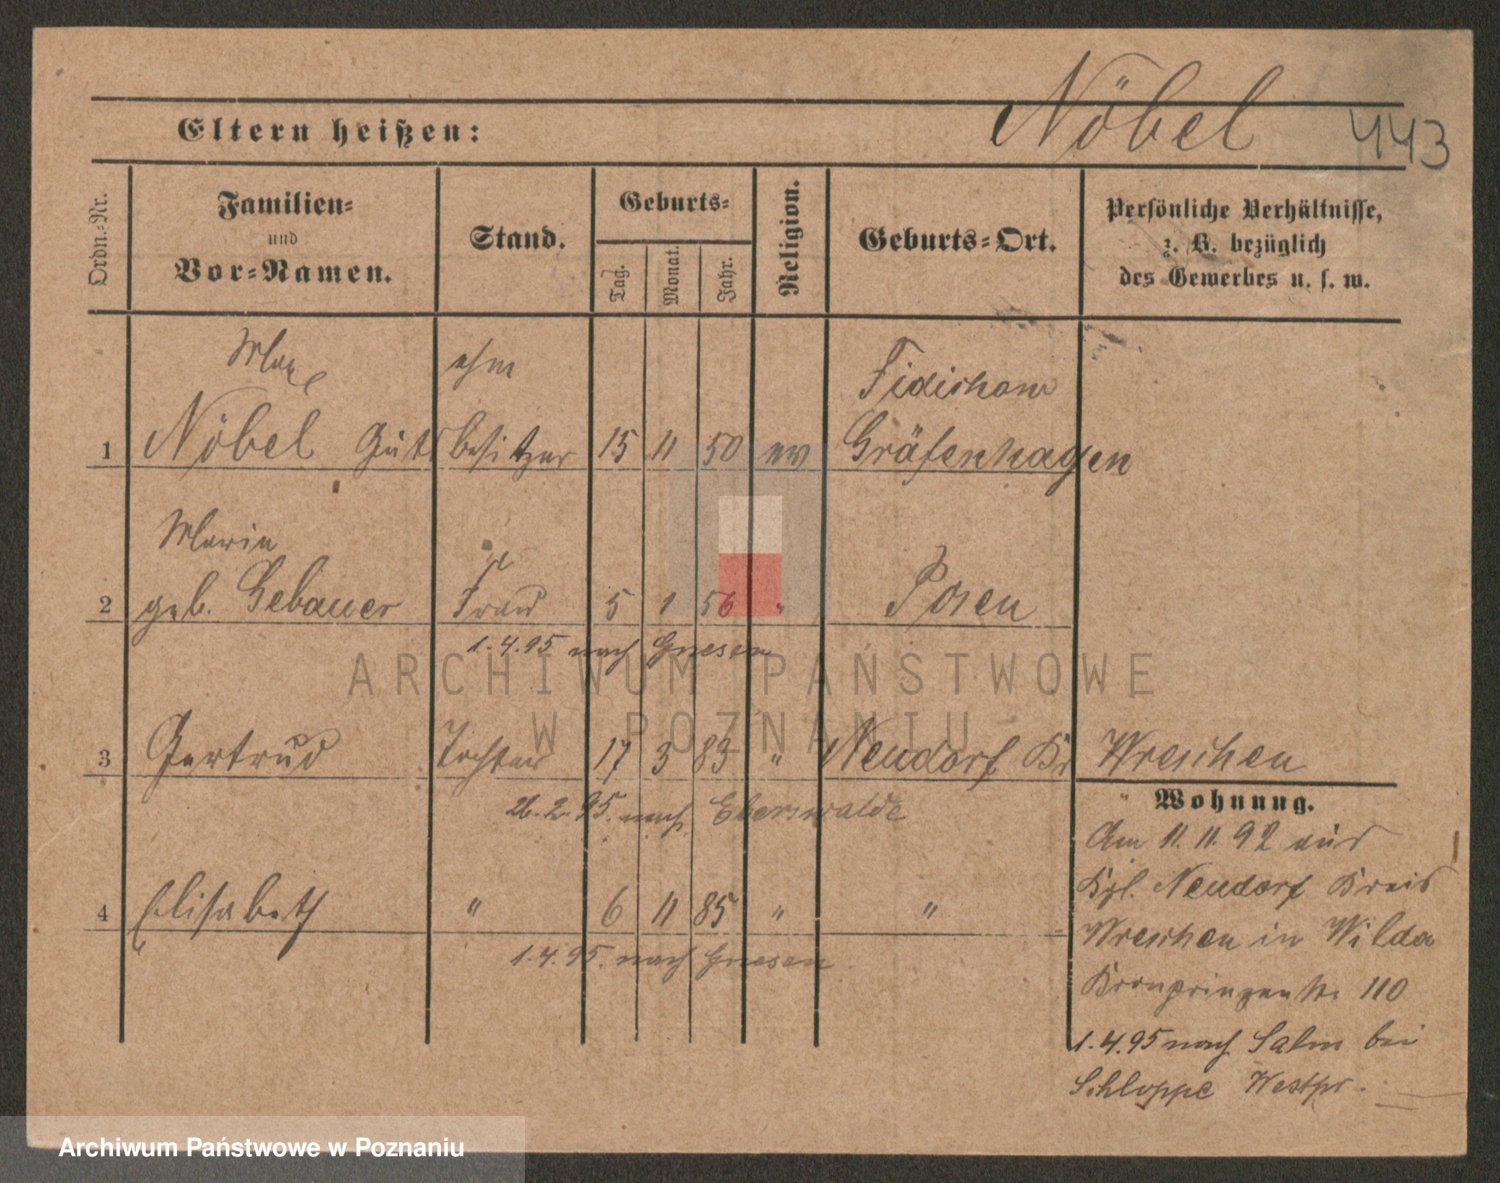 Nöbel
443
Eltern heißen:
Ordn.-Nr.
Familien-
und
Vor-Namen.
Stand.
Geburts-
Tag.
Monat.
Jahr.
Religion.
Geburts-Ort.
Persönliche Verhältnisse,
z. B. bezüglich
des Gewerbes u. s. w.
Max ehm
1 Nöbel Gutsbesitzer 15 11 50 ev Gräfenhagen
Marie
2 geb. Gebauer Frau 5 1 56 " Posen
1.4.95 nach Gnesen
3 Gertrud Tochter 17 3 83 " Neudorf Kr Wreschen
26.2.95. nach Eberswalde
4 Elisabeth " 6 11 85 " "
1.4.95. nach Gnesen
Wohnung.
Am 11.11.92 aus
Kgl. Neudorf Kreis
Wreschen in Wilda
Kronprinzenstr. 110
1.4.95 nach Salm bei
Schloppe Westpr.
ARCHIWUM PAŃSTWOWE
W POZNANIU
Archiwum Państwowe w Poznaniu